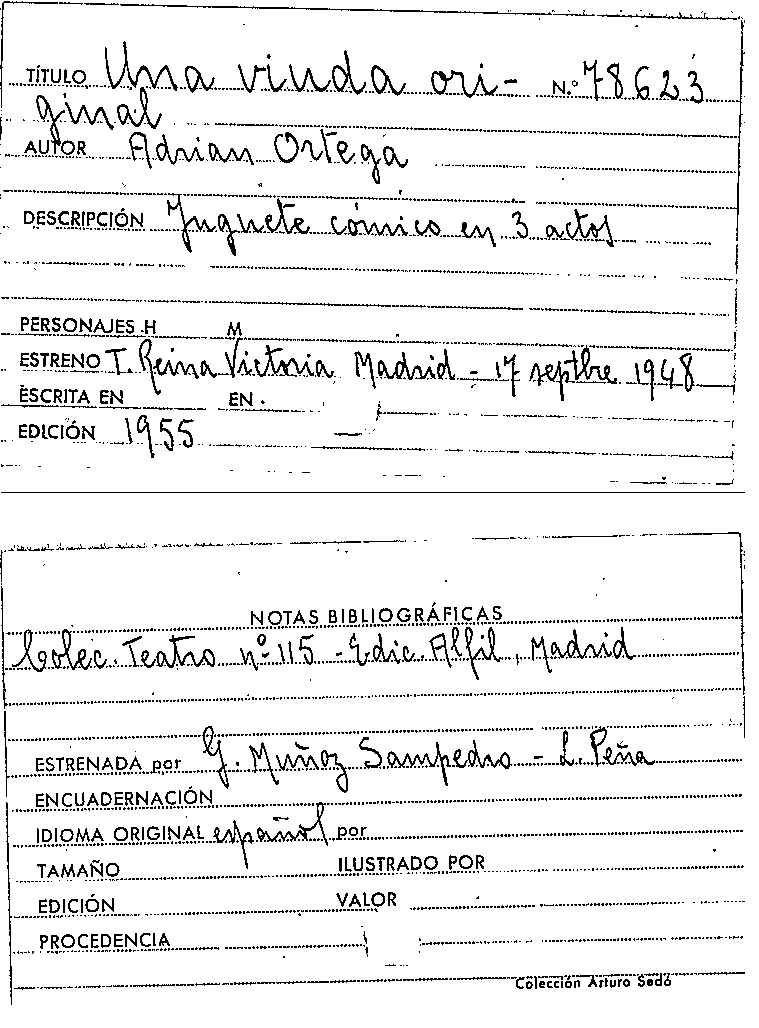 TÍTULO Una viuda ori- N.º 78623
ginal
AUTOR Adrian Ortega
DESCRIPCIÓN Juguete cómico en 3 actos
PERSONAJES H M
ESTRENO T. Reina Victoria Madrid - 17 septbre 1948
ESCRITA EN EN
EDICIÓN 1955
NOTAS BIBLIOGRÁFICAS
Colec. Teatro nº 115 - Edic. Alfil, Madrid
ESTRENADA por G. Muñoz Sampedro - L. Peña
ENCUADERNACIÓN
IDIOMA ORIGINAL español por
TAMAÑO ILUSTRADO POR
EDICIÓN VALOR
PROCEDENCIA
Colección Arturo Sedó